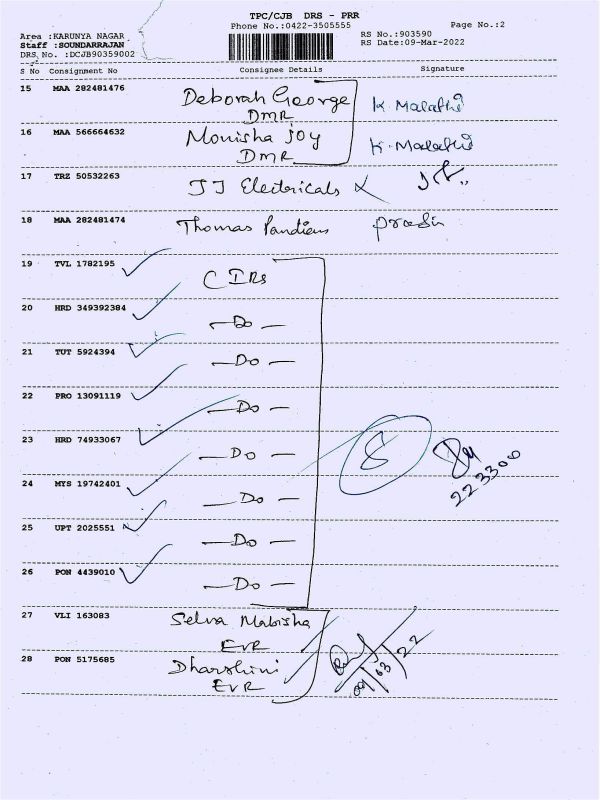 TPC/CJB DRS - PRR
Phone No.:0422-3505555 Page No.:2
Area :KARUNYA NAGAR RS No.:903590
Staff :SOUNDARRAJAN RS Date:09-Mar-2022
DRS No. :DCJB90359002
S No Consignment No Consignee Details Signature
15 MAA 282481476 Deborah George K. Malathi
DMR
16 MAA 566664632 Monisha joy K. Malathi
DMR
17 TRZ 50532263 JJ Electricals
18 MAA 282481474 Thomas Pandians
19 TVL 1782195 CIRs
20 HRD 349392384 - Do -
21 TUT 5924394 - Do -
22 PRO 13091119 - Do -
23 HRD 74933067 - Do -
8
24 MYS 19742401 - Do -
223300
25 UPT 2025551 - Do -
26 PON 4439010 - Do -
27 VLI 163083 Selva Mabisha
EVR
28 PON 5175685 Dharshini
EVR
09/03/22